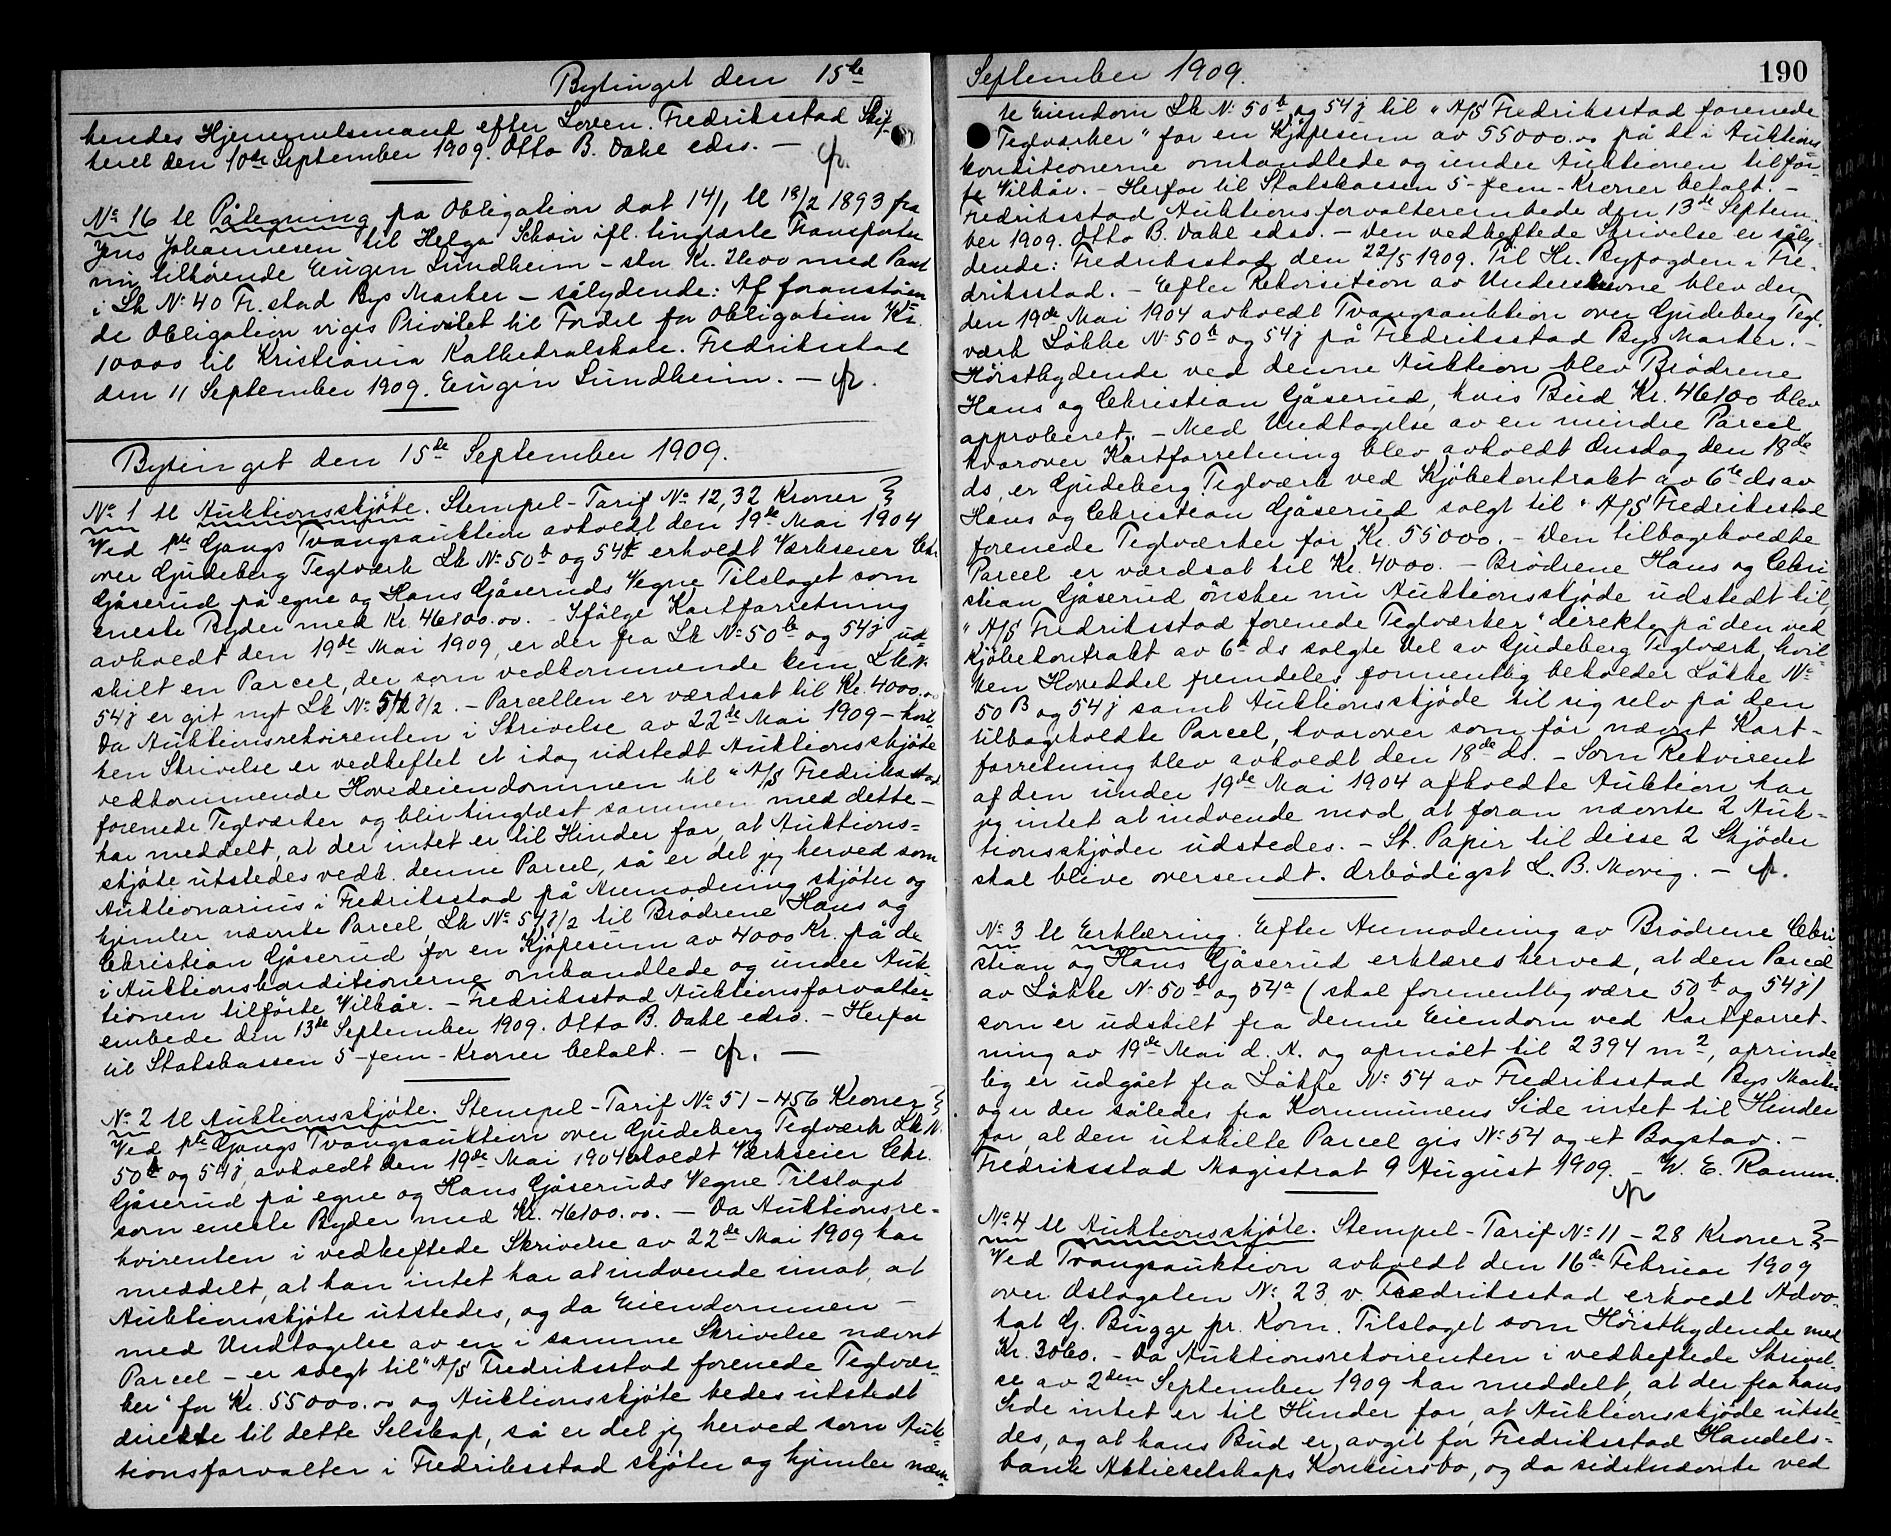 Bytinget den 15de
kendes Hjemmelsmand efter Loven. Fredriksstad Skif-
teret den 10de September 1909. Otto B. Dahl edso. —
No 16 tl Pålegning på Obligation dat 14/1 tl 18/2 1893 fra
Jens Johannesen til Helga Schou ifl. tinglæste Transporter
nu tilhørende Eugen Sundheim - stor Kr. 2600 med Pant
i Lk No 40 Fr.stad Bys Marker - sålydende: Af foranståen
de Obligation viges Prioritet til Fordel for Obligation Kr.
10000 til Kristiania Kathedralskole. Fredriksstad
den 11 September 1909. Eugen Sundheim. —
Bytinget den 15de September 1909.
No 1 tl Auktionsskjöte. Stempel-Tarif No 12, 32 Kroner
Ved 1ste Gangs Tvangsauktion avholdt den 19de Mai 1904
over Gudeberg Teglværk Lk No 50b og 54j erholdt Værkseier Chr.
Gåserud på egne og Hans Gåseruds Vegne Tilslaget som
eneste Byder med Kr. 46100.00. - Ifølge Kartforretning
avholdt den 19de Mai 1909, er der fra Lk No 50b og 54j ud-
skilt en Parcel, der som vedkommende kun Lk No
54j er git nyt Lk No 54j/2. - Parcellen er værdsat til Kr. 4000.00
Da Auktionsrekvirenten i Skrivelse av 22de Mai 1909 - hvil-
ken Skrivelse er vedheftet et idag udstedt Auktionsskjöte
vedkommende Hovedeiendommen til "A/S Fredriksstad
forenede Teglværker og blir tinglæst sammen med dette -
har meddelt, at der intet er til Hinder for, at Auktions-
skjöte utstedes vedk. denne Parcel, så er det jeg herved som
Auktionarius i Fredriksstad på Anmodning skjöter og
hjemler nævnte Parcel, Lk No 54j/2 til Brødrene Hans og
Christian Gåserud for en Kjöpesum av 4000 Kr. på de
i Auktionskonditionerne omhandlede og under Auk-
tionen tilförte Vilkår. - Fredriksstad Auktionsforvalter-
embede den 13de September 1909. Otto B. Dahl edso. - Herfor
til Statskassen 5 - fem - Kroner betalt. —
No 2 tl Auktionsskjöte. Stempel-Tarif No 51 - 456 Kroner
Ved 1ste Gangs Tvangsauktion over Gudeberg Teglværk Lk No
50b og 54j, avholdt den 19de Mai 1904 erholdt Værkseier Chr.
Gåserud på egne og Hans Gåseruds Vegne Tilslaget
som eneste Byder med Kr. 46100.00. - Da Auktionsre-
kvirenten i vedheftede Skrivelse av 22de Mai 1909 har
meddelt, at han intet har at indvende imot, at
Auktionsskjöte utstedes, og da Eiendommen -
med Undtagelse av en i samme Skrivelse nævnt
Parcel - er solgt til "A/S Fredriksstad forenede Teglvær-
ker" for Kr. 55000.00 og Auktionsskjöte bedes utstedt
direkte til dette Selskap, så er det jeg herved som Auk-
tionsforvalter i Fredriksstad skjöter og hjemler nævn-
September 1909.
190
te Eiendom Lk No 50b og 54j til "A/S Fredriksstad forenede
Teglværker" for en Kjöpesum av 55000.00 på de i Auktions
konditionerne omhandlede og under Auktionen tilför-
te Vilkår. - Herfor til Statskassen 5 - fem - Kroner betalt. -
Fredriksstad Auktionsforvalterembede den 13de Septem-
ber 1909. Otto B. Dahl edso. - Den vedheftede Skrivelse er såly-
dende: Fredriksstad den 22/5 1909. Til Hr. Byfogden i Fre-
driksstad. - Efter Rekvisition av Underskrevne blev der
den 19de Mai 1904 avholdt Tvangsauktion over Gudeberg Tegl-
værk Løkke No 50b og 54j på Fredriksstad Bys Marker. -
Höistbydende ved denne Auktion blev Brödrene
Hans og Christian Gåserud, hvis Bud Kr. 46100 blev
approberet. - Med Undtagelse av en mindre Parcel,
hvorover Kartforretning blev avholdt Onsdag den 18de
ds, er Gudeberg Teglværk ved Kjöbekontrakt av 6te ds av
Hans og Christian Gåserud solgt til "A/S Fredriksstad
forenede Teglværker for Kr. 55000. - Den tilbageholdte
Parcel er værdsat til Kr. 4000. - Brødrene Hans og Chri
stian Gåserud önsker nu Auktionsskjöde udstedt til
"A/S Fredriksstad forenede Teglværker" direkte på den ved
Kjöbekontrakt av 6te ds solgte Del av Gudeberg Teglværk, hvil-
ken Hoveddel fremdeles formentlig beholder Løkke No
50B og 54j samt Auktionsskjöde til sig selv på den
tilbageholdte Parcel, hvorover som för nævnt Kart-
forretning blev avholdt den 18de ds. - Som Rekvirent
af den under 19de Mai 1904 afholdte Auktion har
jeg intet at indvende mod, at foran nævnte 2 Auk-
tionsskjöder udstedes. - St. Papir til disse 2 Skjöder
skal blive oversendt. Ærbödigst L. B. Movig. —
No 3 tl Erklæring. Efter Anmodning av Brødrene Chri
stian og Hans Gåserud erklæres herved, at den Parcel
av Løkke No 50b og 54a (skal formentlig være 50b og 54j)
som er udskilt fra denne Eiendom ved Kartforret-
ning av 19de Mai d. A. og opmålt til 2394 m2, oprinde-
lig er udgået fra Løkke No 54 av Fredriksstad Bys Marker
og er der således fra Kommunens Side intet til Hinder
for, at den utskilte Parcel gis No 54 og et Bogstav. -
Fredriksstad Magistrat 9 August 1909. - W. E. Ramm.
No 4 tl Auktionsskjöte. Stempel-Tarif No 11 - 28 Kroner
Ved Tvangsauktion avholdt den 16de Februar 1909
over Oslogaten No 23 v. Fredriksstad erholdt Advo-
kat G. Bugge pr. Kom. Tilslaget som Höistbydende med
Kr. 3060. - Da Auktionsrekvirenten i vedheftede Skrivel-
se av 2den September 1909 har meddelt, at der fra hans
Side intet er til Hinder for, at Auktionsskjöde utste-
des, og at hans Bud er avgit for Fredriksstad Handels-
bank Aktieselskaps Konkursbo, og da sidstnævnte ved